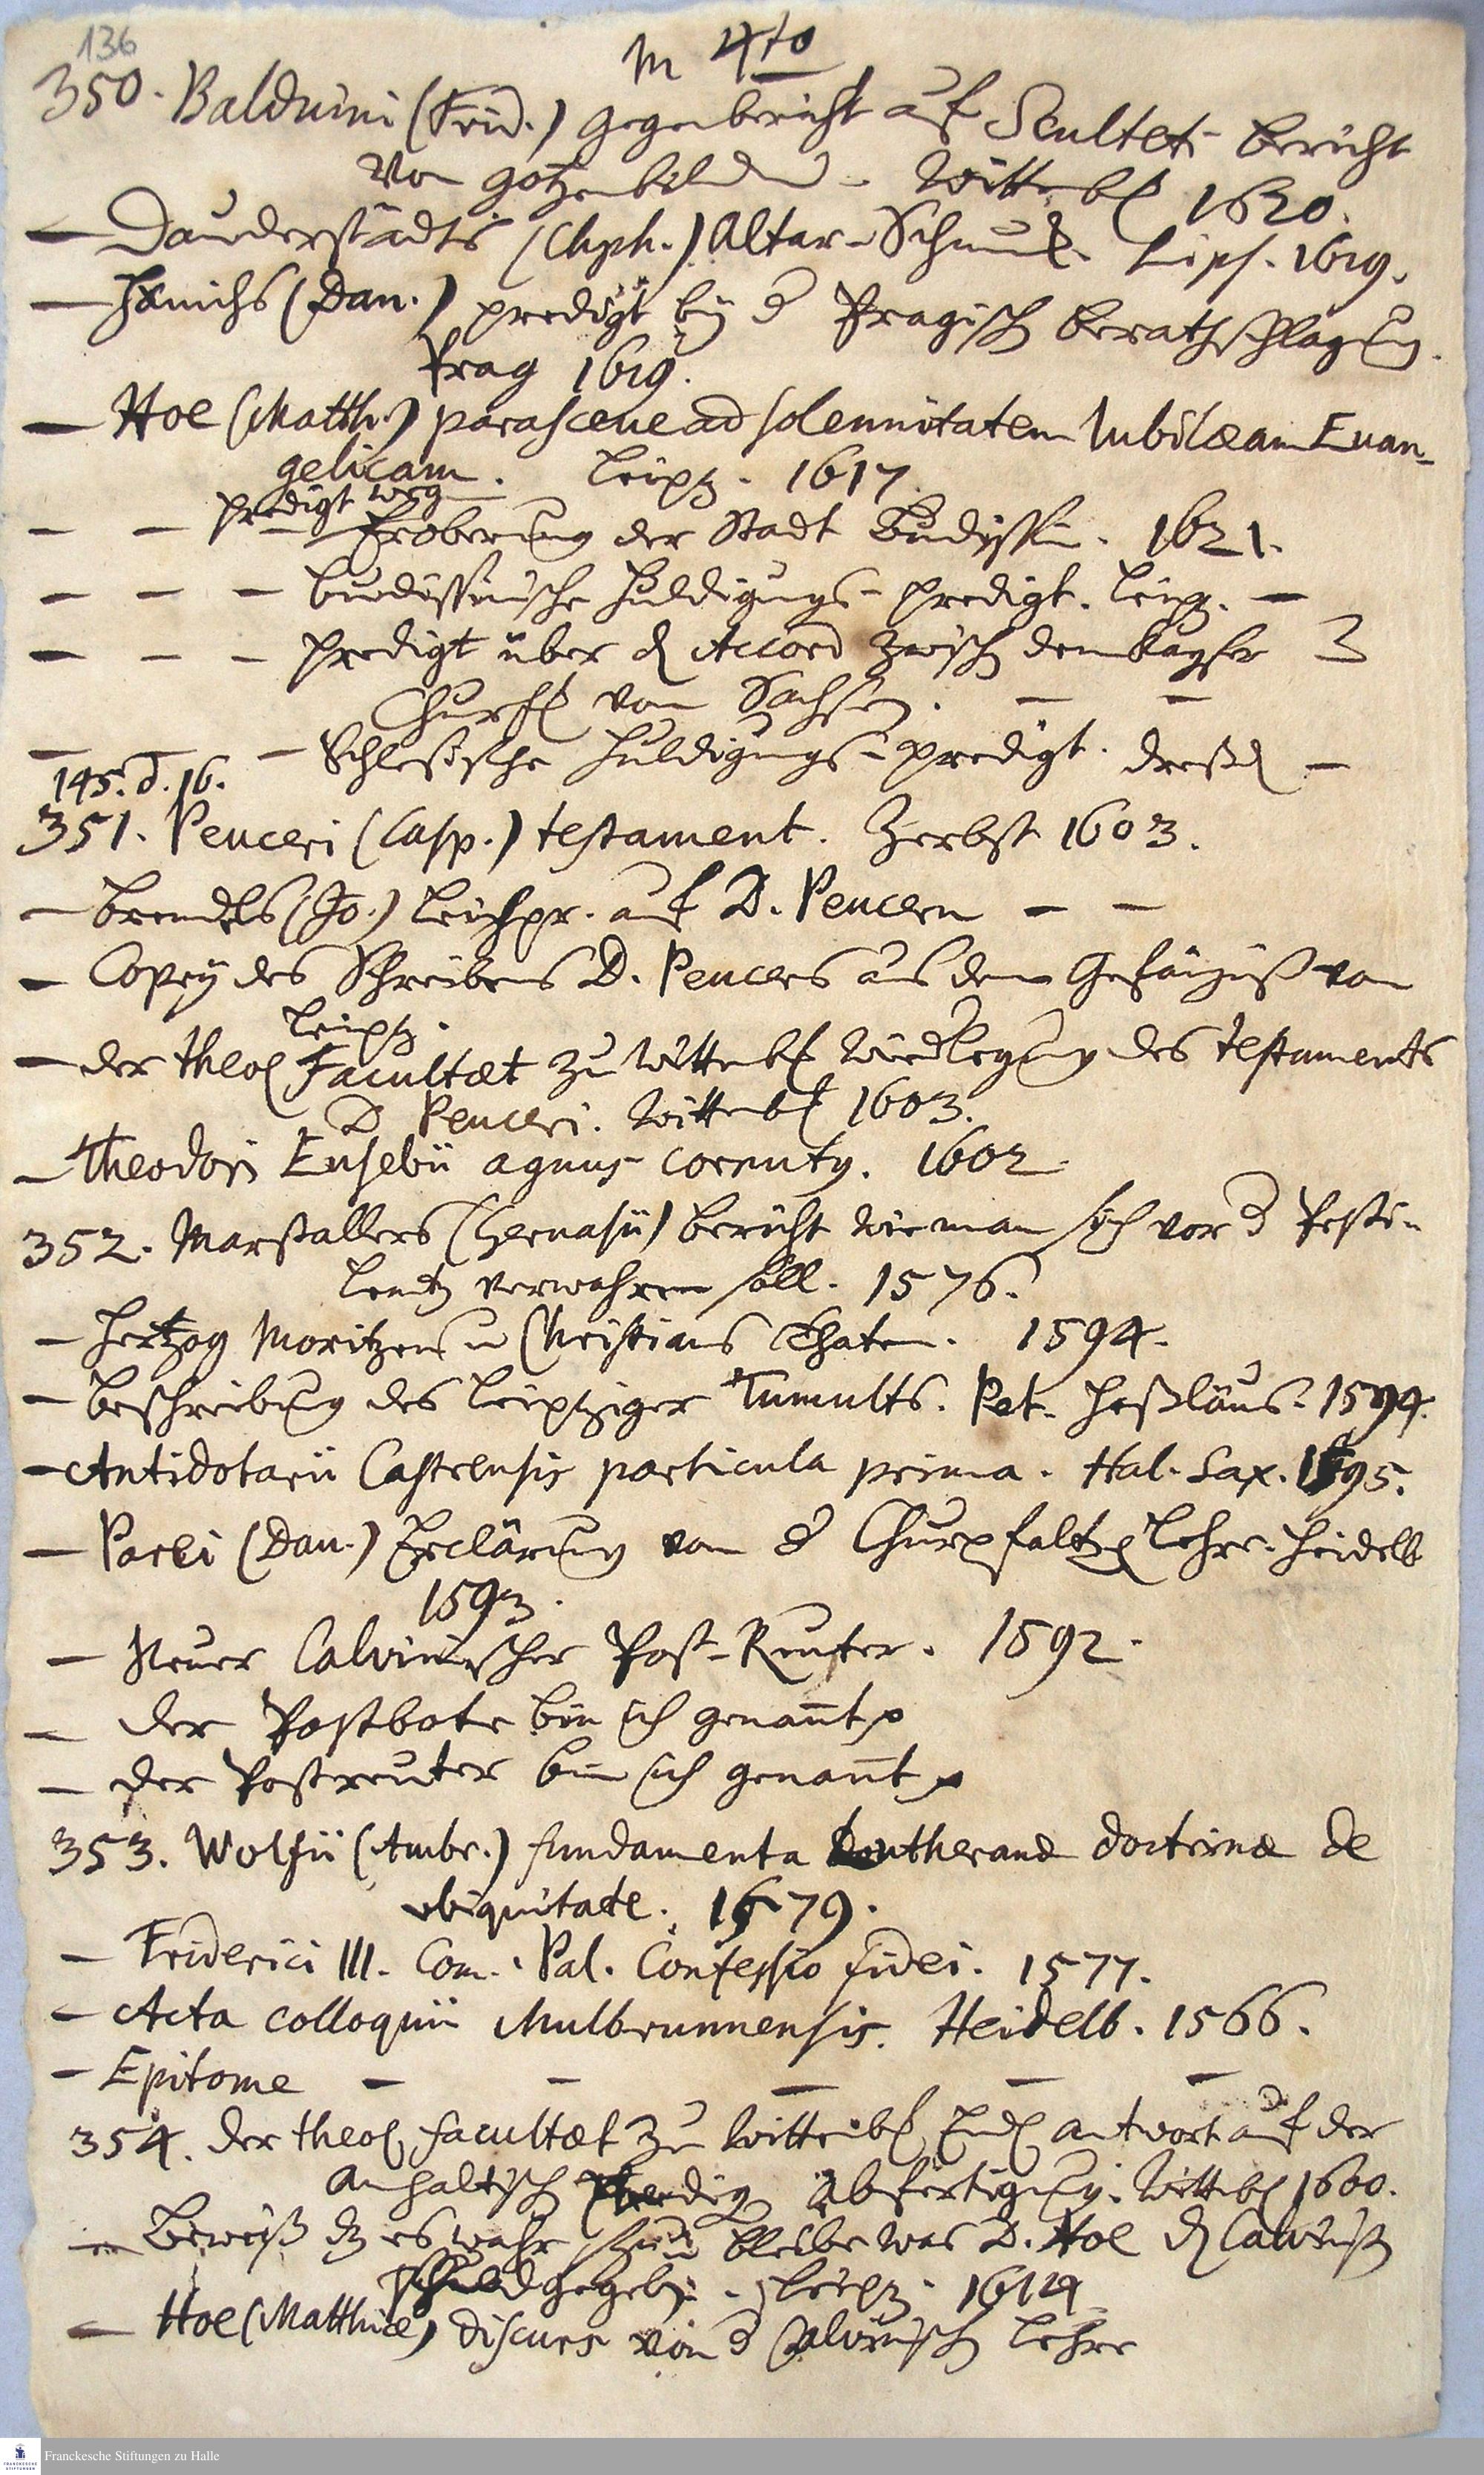 136
in 4to
350. Balduini (Frid.) gegenbericht auf Scultet. bericht
von götzenbildern. Wittenb. 1620.
— Dauderstadts (Chph.) Altar-Schmuck. Lips. 1619.
— Hänichs (Dan.) predigt bey d Pragisch berathschlagung.
Prag 1619.
— Hoe (Matth.) parasceve ad solennitatem Iubilæam Euan-
gelicam. Leipz. 1617.
— — predigt weg
— Eroberung der Stadt Budissin. 1621.
— — — budissinische Huldigungs-predigt. Leipz. —
— — — predigt über d Accord zwisch dem Kayser
Churf von Sachsen. — —
— — Schlesische Huldigungs-predigt. Dreßd —
145. d. 16.
351. Peuceri (Casp.) testament. Zerbst 1603.
— brendels (Jo.) Leichpr. auf D. Peucern — —
— Copey des Schreibens D. Peucers aus dem Gefängniß von
Leipz.
— der theol Facultæt zu Wittenb Wiedlegung des testaments
D Peuceri. Wittenb 1603.
— Theodori Eusebii agnus cornuty. 1602
352. Marstallers (Gervasii) bericht wie man sich vor d Pesti-
lentz verwahren soll. 1576.
— Hertzog Moritzens u Christians Thaten. 1594.
— beschreibung des Leipziger Tumults. Pet. Heßläus. 1594.
— Antidotarii Castrensis particula prima. Hal. Sax. 1595.
— Parei (Dan.) Erclärung von d Churpfaltz Lehre. Heidelb
1593.
— Neuer Calvinischer Post-Reuter. 1592.
— der Postbote bin ich genañt
— der Postreuter bin ich genañt
353. Wolfii (Ambr.) fundamenta Lutheranæ doctrinæ de
ubiquitate. 1579.
— Friderici III. Com. Pal. Confessio fidei. 1577.
— Acta colloquii Mulbrunnensis. Heidelb. 1566.
— Epitome — — — — —
354. der theol facultæt zu Wittenb Endl antwort auf der
Anhaltisch Abfertigung. Wittenb 1600.
— beweiß dz es wahr sey bleibe was D. Hoe d Calvinist
schuld gegeb. Leipz. 1614
— Hoe (Matthiæ) discurs von d Calvinisch Lehre
Franckesche Stiftungen zu Halle